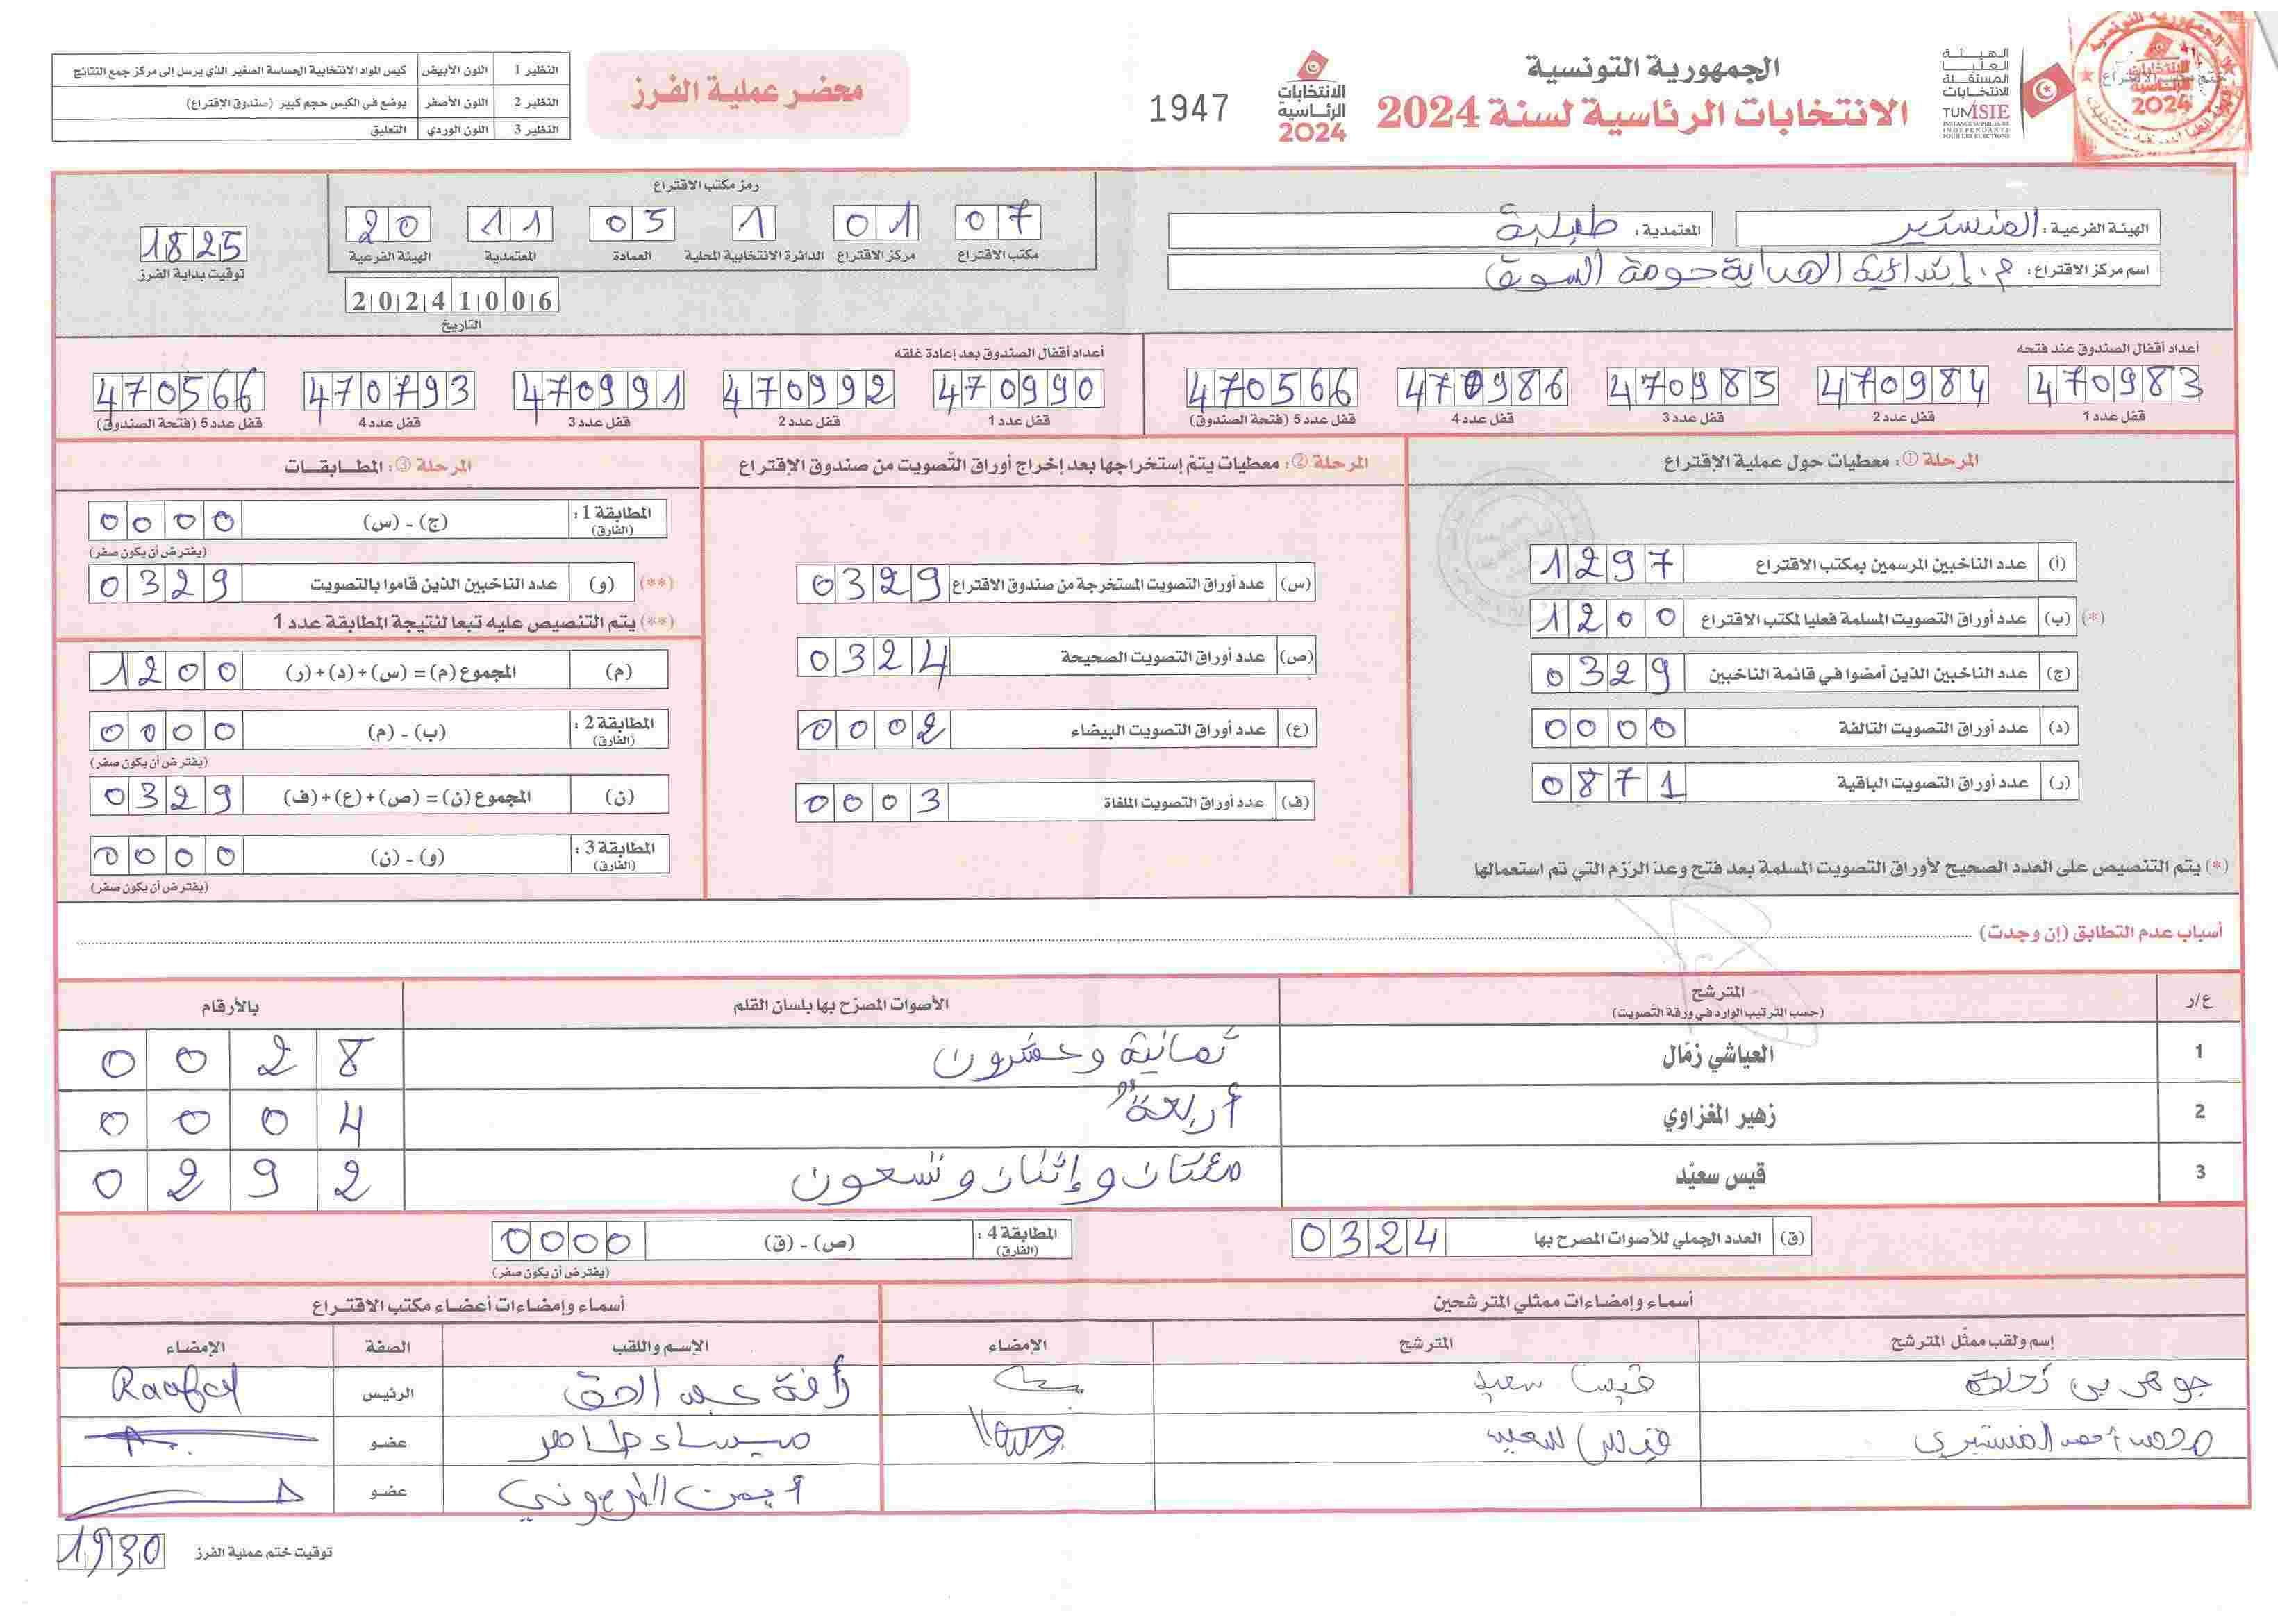 الجمهورية التونسية
الانتخابات الرئاسية لسنة 2024
الهيئة العليا المستقلة للانتخابات
TUNISIE
INSTANCE SUPERIEURE INDEPENDANTE POUR LES ELECTIONS
الانتخابات الرئاسية 2024
1947
محضر عملية الفرز
النظير 1 اللون الأبيض كيس المواد الانتخابية الحساسة الصغير الذي يرسل إلى مركز جمع النتائج
النظير 2 اللون الأصفر يوضع في الكيس حجم كبير (صندوق الإقتراع)
النظير 3 اللون الوردي التعليق
الهيئة الفرعية: المنستير
المعتمدية: طبلبة
اسم مركز الاقتراع: م. إبتدائية الهداية حومة السوق
رمز مكتب الاقتراع
07 مكتب الاقتراع
01 مركز الاقتراع
1 الدائرة الانتخابية المحلية
05 العمادة
11 المعتمدية
20 الهيئة الفرعية
20241006
التاريخ
1825
توقيت بداية الفرز
أعداد أقفال الصندوق عند فتحه
470983 قفل عدد 1
470984 قفل عدد 2
470985 قفل عدد 3
470986 قفل عدد 4
470566 قفل عدد 5 (فتحة الصندوق)
أعداد أقفال الصندوق بعد إعادة غلقه
470990 قفل عدد 1
470992 قفل عدد 2
470991 قفل عدد 3
470793 قفل عدد 4
470566 قفل عدد 5 (فتحة الصندوق)
المرحلة ①: معطيات حول عملية الإقتراع
(أ) عدد الناخبين المرسمين بمكتب الاقتراع 1297
(*) (ب) عدد أوراق التصويت المسلمة فعليا لمكتب الاقتراع 1200
(ج) عدد الناخبين الذين أمضوا في قائمة الناخبين 0329
(د) عدد أوراق التصويت التالفة 0000
(ر) عدد أوراق التصويت الباقية 0871
(*) يتم التنصيص على العدد الصحيح لأوراق التصويت المسلمة بعد فتح وعد الرزم التي تم استعمالها
المرحلة ②: معطيات يتم إستخراجها بعد إخراج أوراق التصويت من صندوق الإقتراع
(س) عدد أوراق التصويت المستخرجة من صندوق الاقتراع 0329
(ص) عدد أوراق التصويت الصحيحة 0324
(ع) عدد أوراق التصويت البيضاء 0002
(ف) عدد أوراق التصويت الملغاة 0003
المرحلة ③: المطابقات
المطابقة 1: (الفارق) (ج) - (س) 0000
(يفترض أن يكون صفر)
(**) (و) عدد الناخبين الذين قاموا بالتصويت 0329
(**) يتم التنصيص عليه تبعا لنتيجة المطابقة عدد 1
(م) المجموع (م) = (س)+(د)+(ر) 1200
المطابقة 2: (الفارق) (ب) - (م) 0000
(يفترض أن يكون صفر)
(ن) المجموع (ن) = (ص)+(ع)+(ف) 0329
المطابقة 3: (الفارق) (و) - (ن) 0000
(يفترض أن يكون صفر)
أسباب عدم التطابق (إن وجدت)
ع/ر المترشح (حسب الترتيب الوارد في ورقة التصويت) الأصوات المصرّح بها بلسان القلم بالأرقام
1 العياشي زمّال ثمانية وعشرون 0028
2 زهير المغزاوي أربعة 0004
3 قيس سعيّد مئتان وإثنان وتسعون 0292
(ق) العدد الجملي للأصوات المصرح بها 0324
المطابقة 4: (الفارق) (ص) - (ق) 0000
(يفترض أن يكون صفر)
أسماء وإمضاءات ممثلي المترشحين
إسم ولقب ممثّل المترشح المترشح الإمضاء
جوهر بن قيس سعيد
محمد أحمد المنستيري قيس سعيد
أسماء وإمضاءات أعضاء مكتب الاقتراع
الإسم واللقب الصفة الإمضاء
رأفة عبد الحق الرئيس Raafet
ميساء طاهر عضو
أيمن عضو
توقيت ختم عملية الفرز 1930